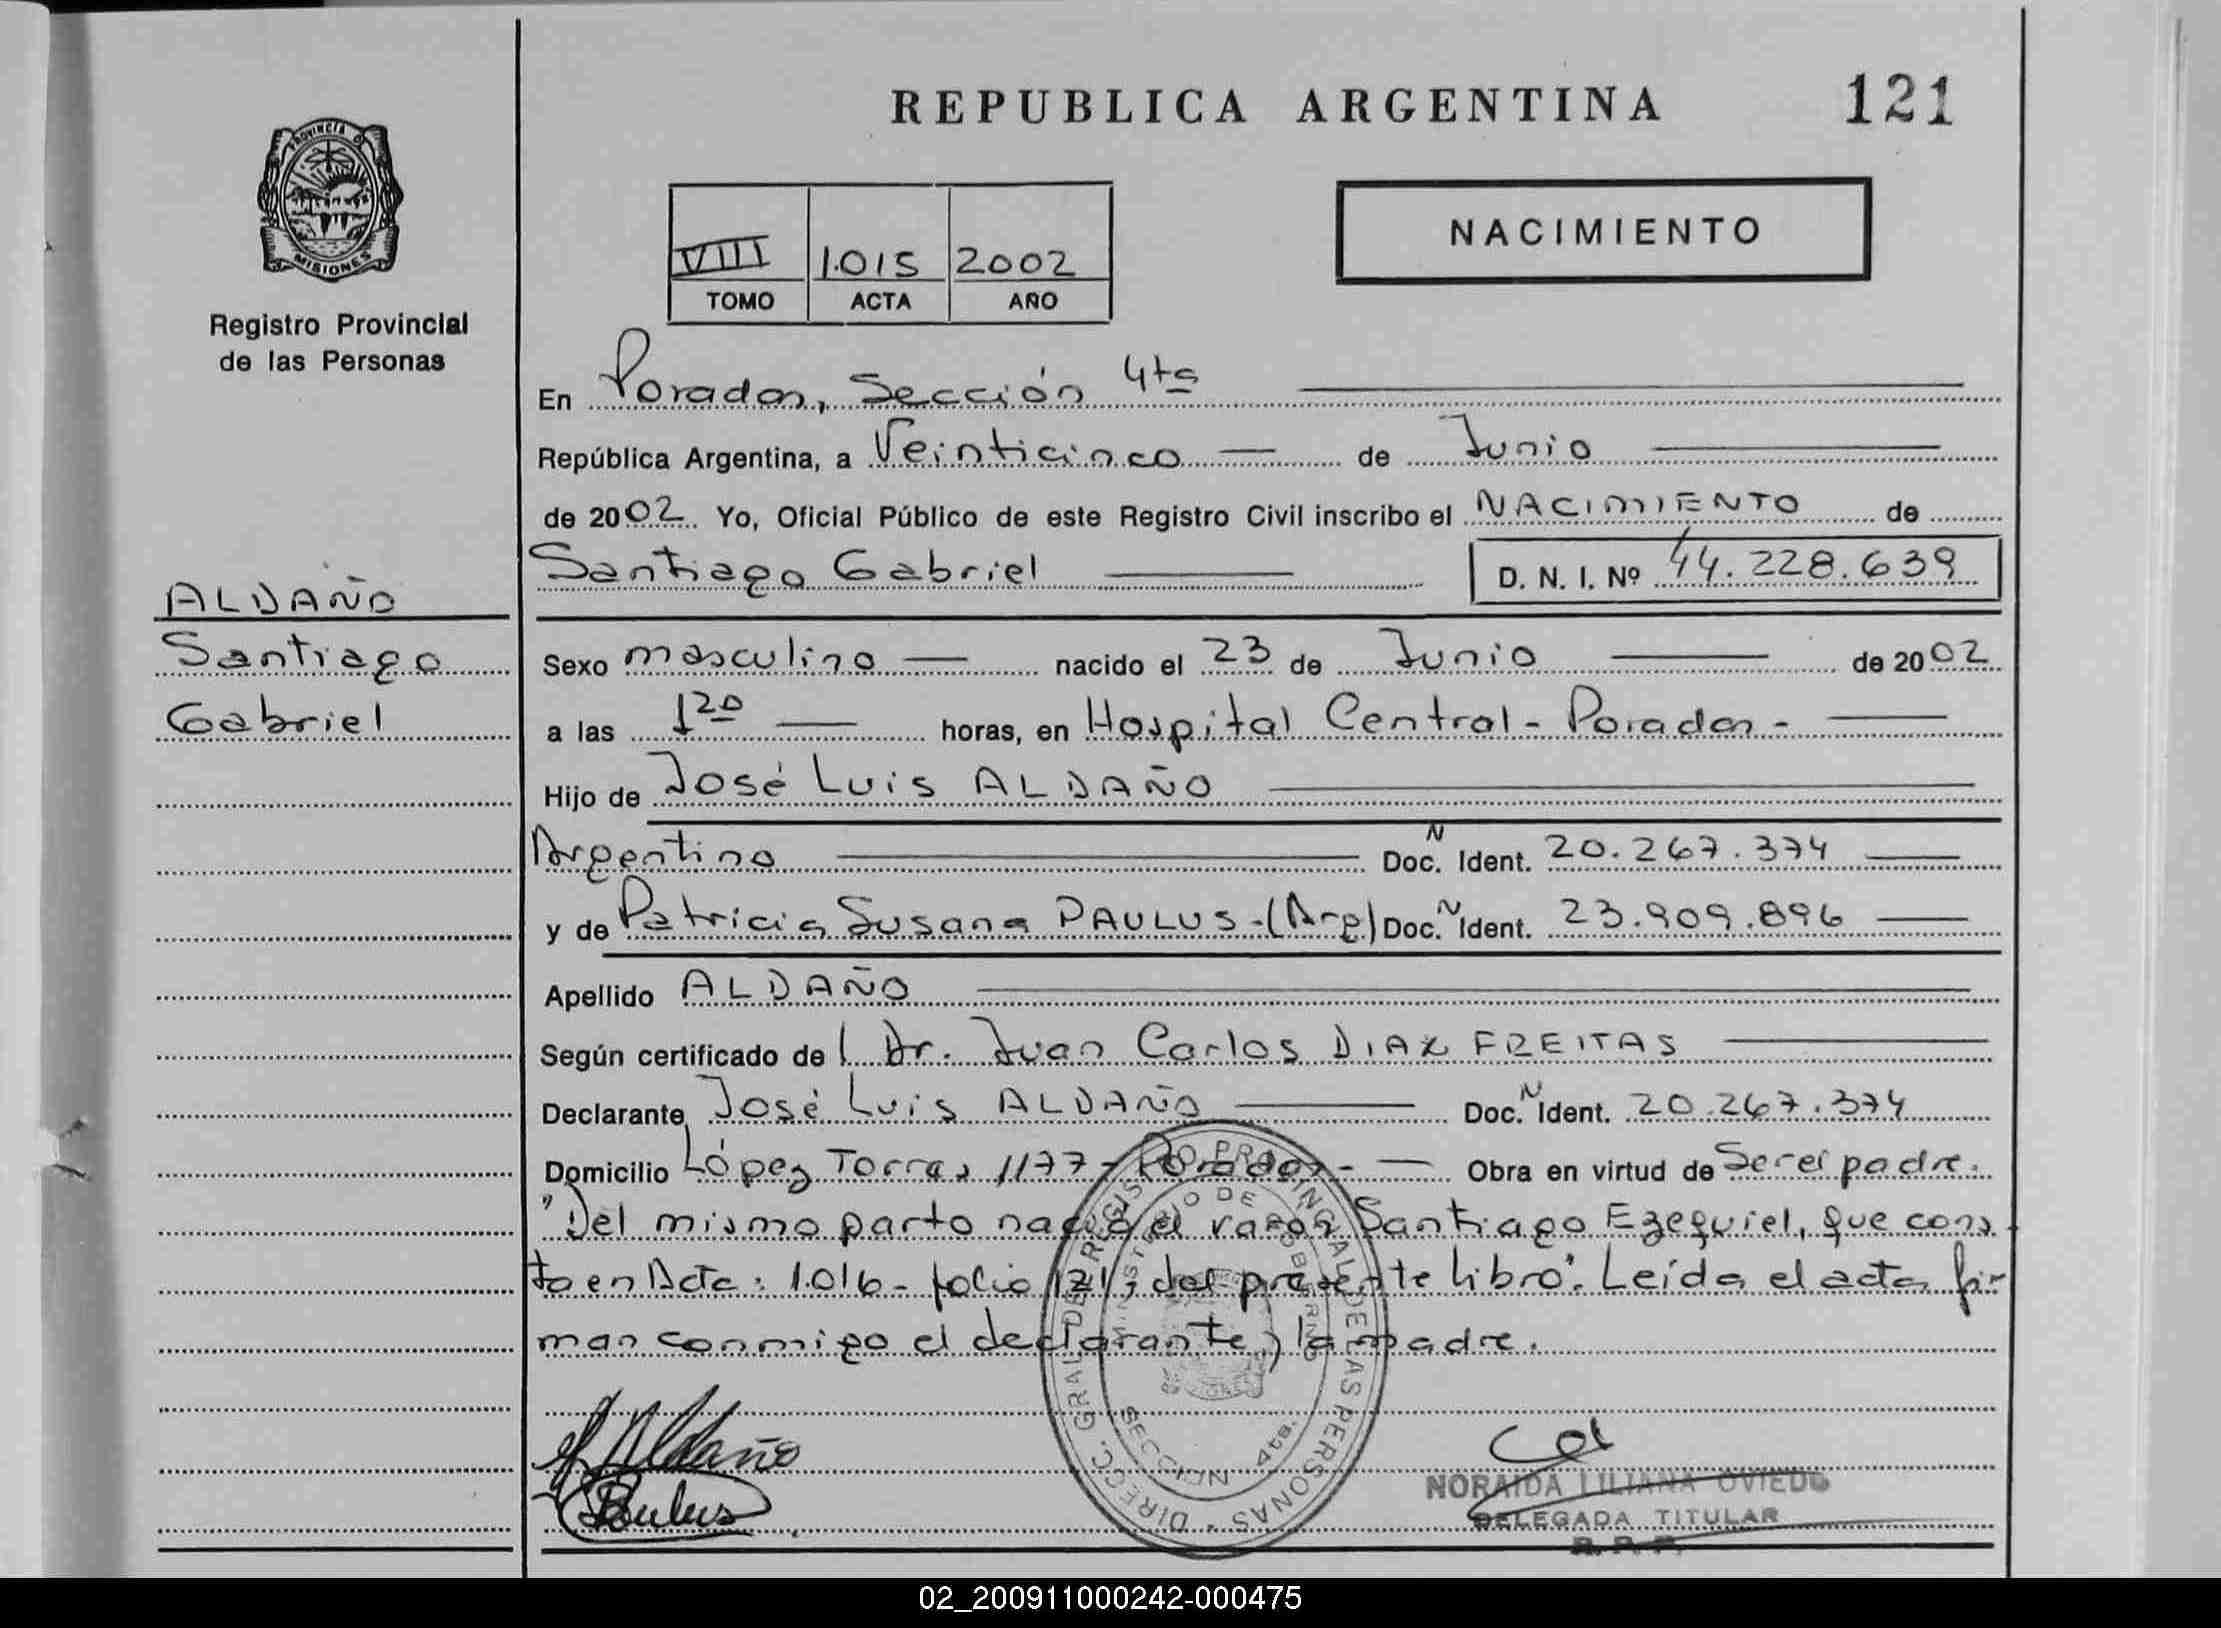 REPUBLICA ARGENTINA
121
PROVINCIA D
MISIONES
Registro Provincial
de las Personas
VIII 1.015 2002
TOMO ACTA AÑO
NACIMIENTO
En Posadas, Sección 4ta
República Argentina, a Veinticinco de Junio
de 2002 Yo, Oficial Público de este Registro Civil inscribo el NACIMIENTO de
Santiago Gabriel D. N. I. Nº 44.228.639
ALDAÑO
Santiago
Gabriel
Sexo masculino nacido el 23 de Junio de 2002
a las 1 20 horas, en Hospital Central - Posadas -
Hijo de José Luis ALDAÑO
Argentino Doc. N Ident. 20.267.374
y de Patricia Susana PAULUS - (Arg) Doc. N Ident. 23.909.896
Apellido ALDAÑO
Según certificado del Dr. Juan Carlos DIAZ FREITAS
Declarante José Luis ALDAÑO Doc. N Ident. 20.267.374
Domicilio López Torres 1177 - Posadas - Obra en virtud de Ser el padre.
"Del mismo parto nació el varón Santiago Ezequiel, que cons
ta en Acta: 1.016 - folio 121, del presente libro". Leída el acta, fir
man conmigo el declarante y la madre.
Aldaño
Paulus
DIRECC. GRAL. DE REGISTRO PROVINCIAL DE LAS PERSONAS
MINISTERIO DE GOBIERNO
SECCION 4ta.
NORAIDA LILIANA OVIEDO
DELEGADA TITULAR
R. P. P.
02_200911000242-000475